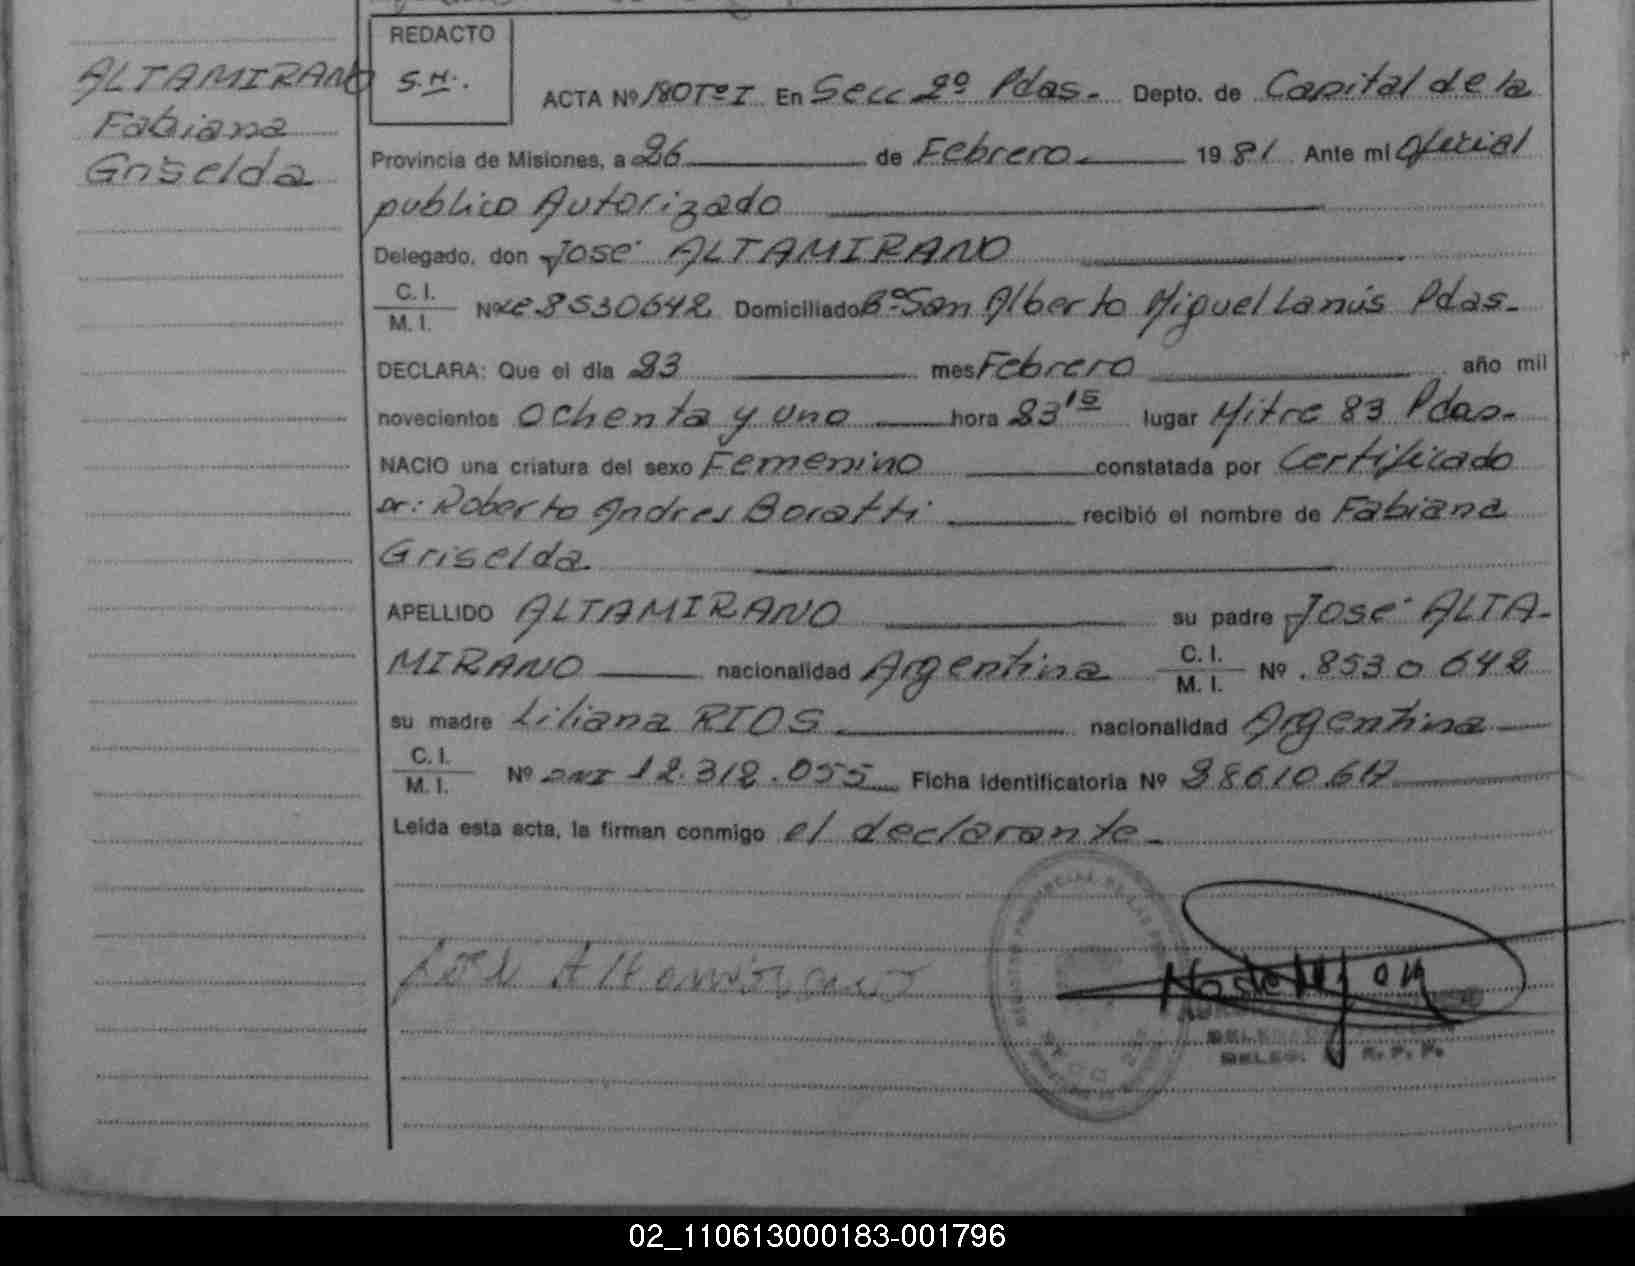 ALTAMIRANO
Fabiana
Griselda
REDACTO
S.H.
ACTA Nº 180 Tº I En Secc 2º Pdas. Depto. de Capital de la
Provincia de Misiones, a 26 de Febrero 1981 Ante mi Oficial
publico Autorizado
Delegado, don José ALTAMIRANO
C. I.
M. I. Nº LE 8530642 Domiciliado Bº San Alberto Miguel Lanús Pdas.
DECLARA: Que el día 23 mes Febrero año mil
novecientos Ochenta y uno hora 23 15 lugar Mitre 83 Pdas.
NACIO una criatura del sexo Femenino constatada por Certificado
Dr: Roberto Andres Boratti recibió el nombre de Fabiana
Griselda.
APELLIDO ALTAMIRANO su padre José ALTA-
MIRANO nacionalidad Argentina C. I. M. I. Nº 8530642
su madre Liliana RIOS nacionalidad Argentina
C. I.
M. I. Nº DNI 12.312.055 Ficha Identificatoria Nº
Leída esta acta, la firman conmigo el declarante
José Altamirano
DELEG. R. P. P.
02_110613000183-001796